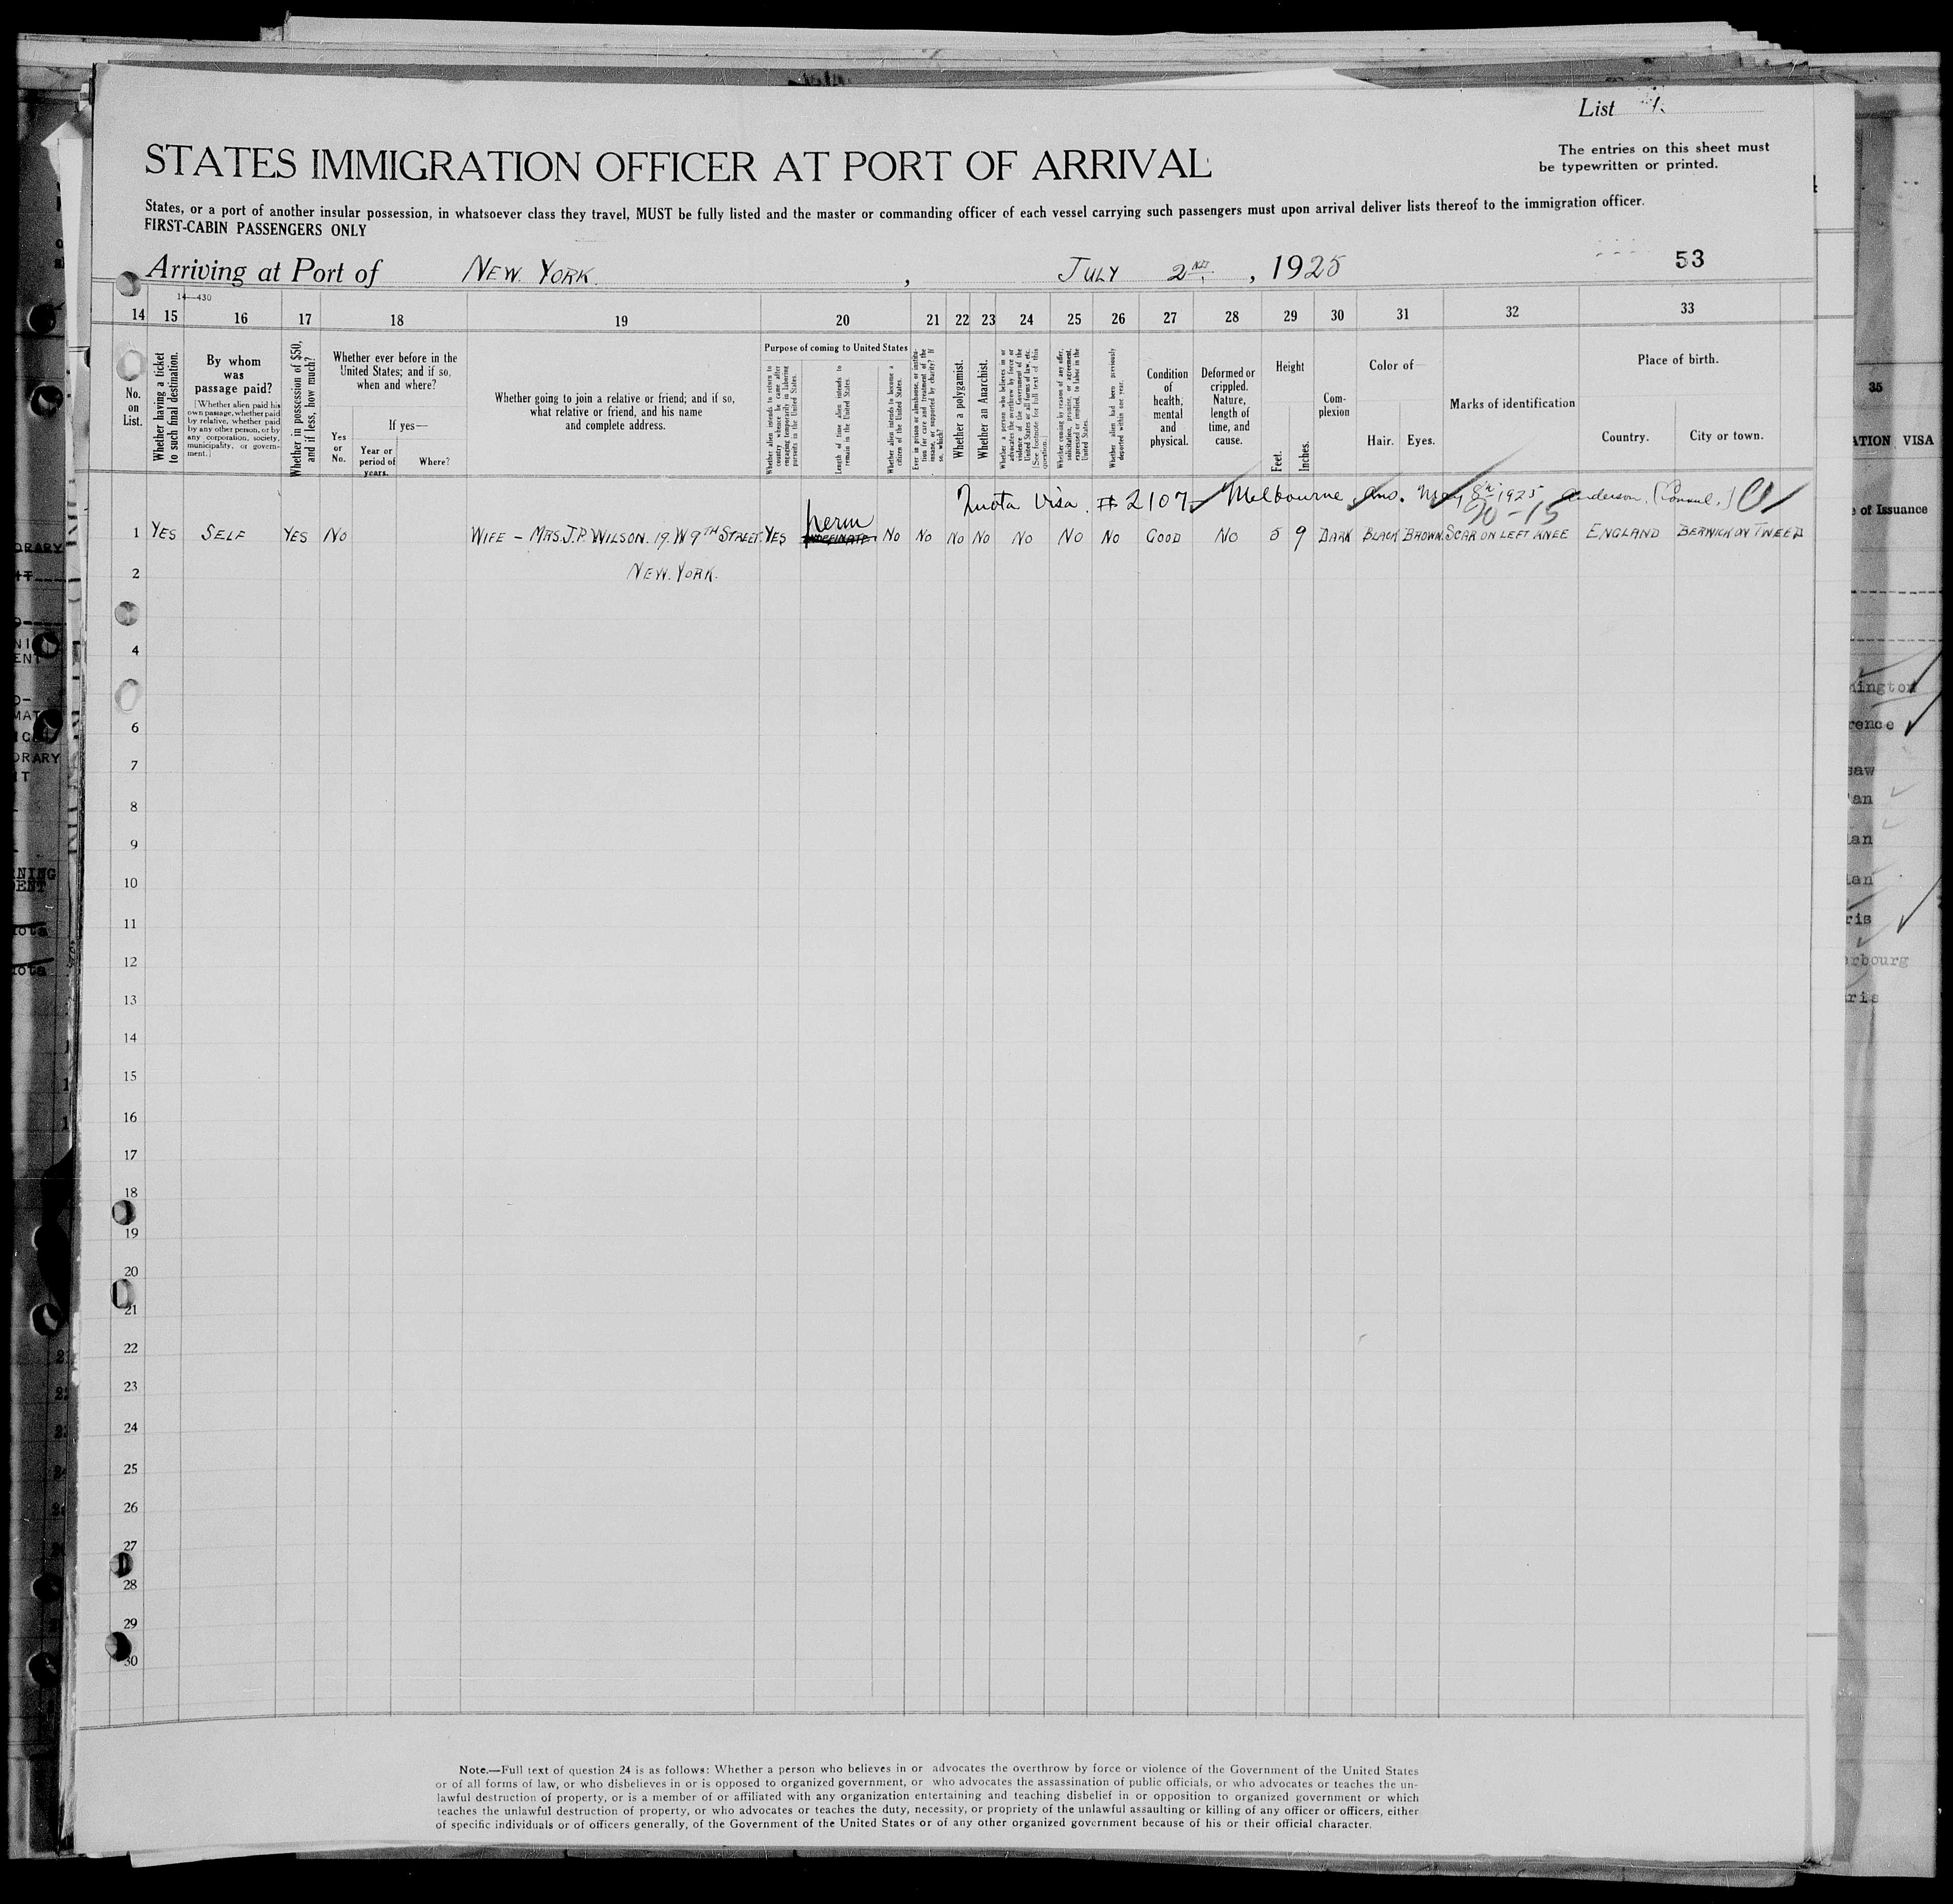 List 1.
The entries on this sheet must
be typewritten or printed.
STATES IMMIGRATION OFFICER AT PORT OF ARRIVAL
States, or a port of another insular possession, in whatsoever class they travel, MUST be fully listed and the master or commanding officer of each vessel carrying such passengers must upon arrival deliver lists thereof to the immigration officer.
FIRST-CABIN PASSENGERS ONLY
Arriving at Port of NEW. YORK. , JULY 2ND , 1925
53
14—430
14 15 16 17 18 19 20 21 22 23 24 25 26 27 28 29 30 31 32 33
No. on List.
Whether having a ticket to such final destination.
By whom was passage paid?
[Whether alien paid his own passage, whether paid by relative, whether paid by any other person, or by any corporation, society, municipality, or government.]
Whether in possession of $50, and if less, how much?
Whether ever before in the United States; and if so, when and where?
Yes or No.
If yes—
Year or period of years.
Where?
Whether going to join a relative or friend; and if so, what relative or friend, and his name and complete address.
Purpose of coming to United States
Whether alien intends to return to country whence he came after engaging temporarily in laboring pursuits in the United States.
Length of time alien intends to remain in the United States.
Whether alien intends to become a citizen of the United States.
Ever in prison or almshouse, or institution for care and treatment of the insane, or supported by charity? If so, which?
Whether a polygamist.
Whether an Anarchist.
Whether a person who believes in or advocates the overthrow by force or violence of the Government of the United States or all forms of law, etc. [See footnote for full text of this question.]
Whether coming by reason of any offer, solicitation, promise, or agreement, expressed or implied, to labor in the United States.
Whether alien had been previously deported within one year.
Condition of health, mental and physical.
Deformed or crippled. Nature, length of time, and cause.
Height
Feet. Inches.
Complexion
Color of—
Hair. Eyes.
Marks of identification
Place of birth.
Country. City or town.
Quota Visa. # 2107 Melbourne, Aus. May 8th 1925 Anderson. (Consul.)
90-15
perm
1 YES SELF YES NO WIFE - MRS. J.P. WILSON. 19. W 9TH STREET. YES INDEFINATE NO NO NO NO NO NO NO GOOD NO 5 9 DARK BLACK BROWN. SCAR ON LEFT KNEE ENGLAND BERWICK ON TWEED
2 NEW. YORK.
4
6
7
8
9
10
11
12
13
14
15
16
17
18
19
20
21
22
23
24
25
26
27
28
29
30
Note.—Full text of question 24 is as follows: Whether a person who believes in or advocates the overthrow by force or violence of the Government of the United States
or of all forms of law, or who disbelieves in or is opposed to organized government, or who advocates the assassination of public officials, or who advocates or teaches the un-
lawful destruction of property, or is a member of or affiliated with any organization entertaining and teaching disbelief in or opposition to organized government or which
teaches the unlawful destruction of property, or who advocates or teaches the duty, necessity, or propriety of the unlawful assaulting or killing of any officer or officers, either
of specific individuals or of officers generally, of the Government of the United States or of any other organized government because of his or their official character.
35
ATION VISA
e of Issuance